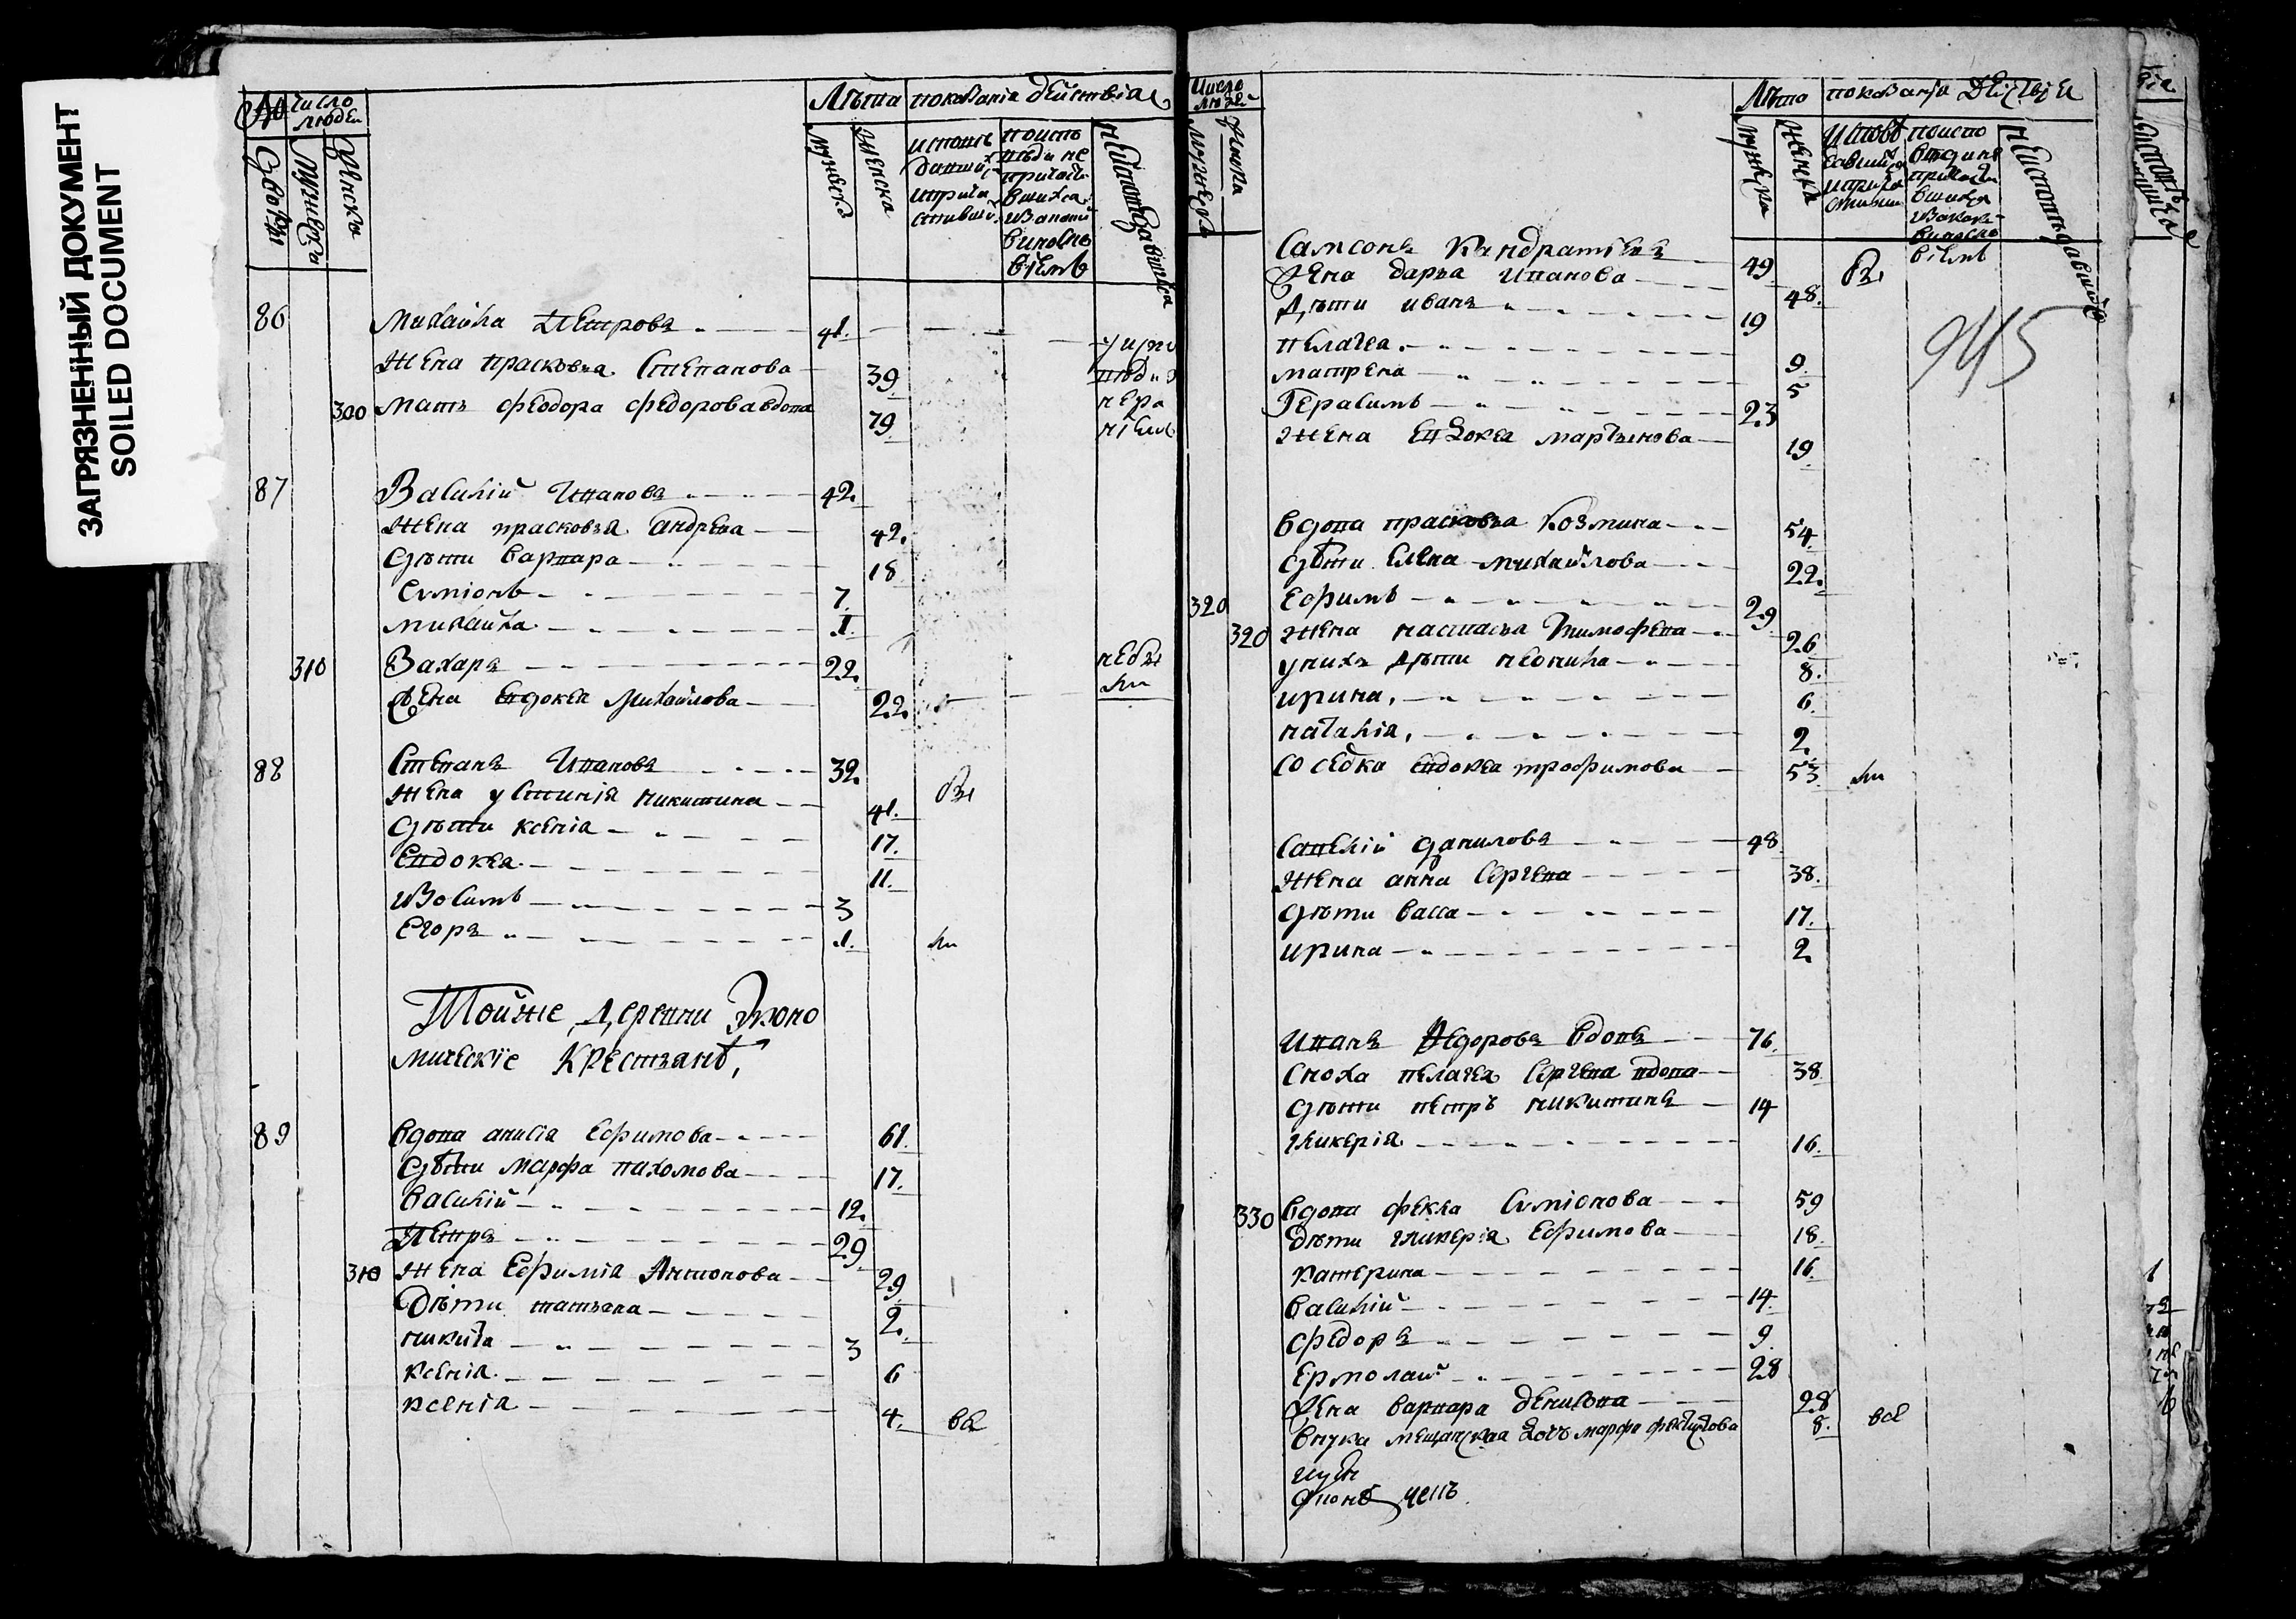 ЗАГРЯЗНЕННЫЙ ДОКУМЕНТ
SOILED DOCUMENT
число людеи
Лѣта показанiа дѣйствiа
мужеска женска
86 Михайла Петровъ 41.
Жена прасковьа Степанова 39
300 мать феодора федорова вдова 79
87 Василiй Ивановъ 42.
Жена прасковьа андрева 42.
дѣти варвара 18
Симiонъ 7.
михайла 1.
310 Захаръ 22. небы
Жена Евдокеа Михайлова 22. ли
88 Степанъ Ивановъ 32.
Жена устинiа никитина 41. бы
дѣти ксенiа 17.
Евдокеа 11.
Изосимъ 3
Егоръ 1. ли
Тойже деревни Эконо
мическiе крестьянѣ,
89 вдова анисiа Ефимова 61.
дѣти марфа пахомова 17.
василiй 12.
Петръ 29
310 жена Ефимiа Антонова 29
Дѣти татьяна 2.
никита 3
ксенiа 6
ксенiа 4. всѣ
число людей
Лѣта показанiа дѣйствiа
мужеска женска
945
Самсонъ Кандратьевъ 49
Жена дарьа Иванова 48. бы
Дѣти иванъ 19
пелагеа 9.
матрена 5
Герасимъ 23
жена Евдокеа мартынова 19
вдова прасковьа Козмина 54
дѣти Елена михайлова 22.
320 Ефимъ 29
320 жена настасьа Тимофева 26
унихъ дѣти неонила 8.
ирина, 6.
наталiа, 2.
соседка Евдокеа трофимова 53 ли
Савелiй даниловъ 48
Жена анна Сергева 38.
дѣти васса 17.
ирина 2.
Иванъ Федоровъ вдовъ 76.
Сноха пелагеа Сергева вдова 38
дѣти петръ никитинъ 14
гликерiа 16.
330 вдова фекла Симiонова 59
дѣти гликерiа Ефимова 18.
катерина 16.
василiй 14.
федоръ 9
Ермолай 28
Жена варвара денисова 28
внука мещанская дочь марфа феклистова 8. всѣ